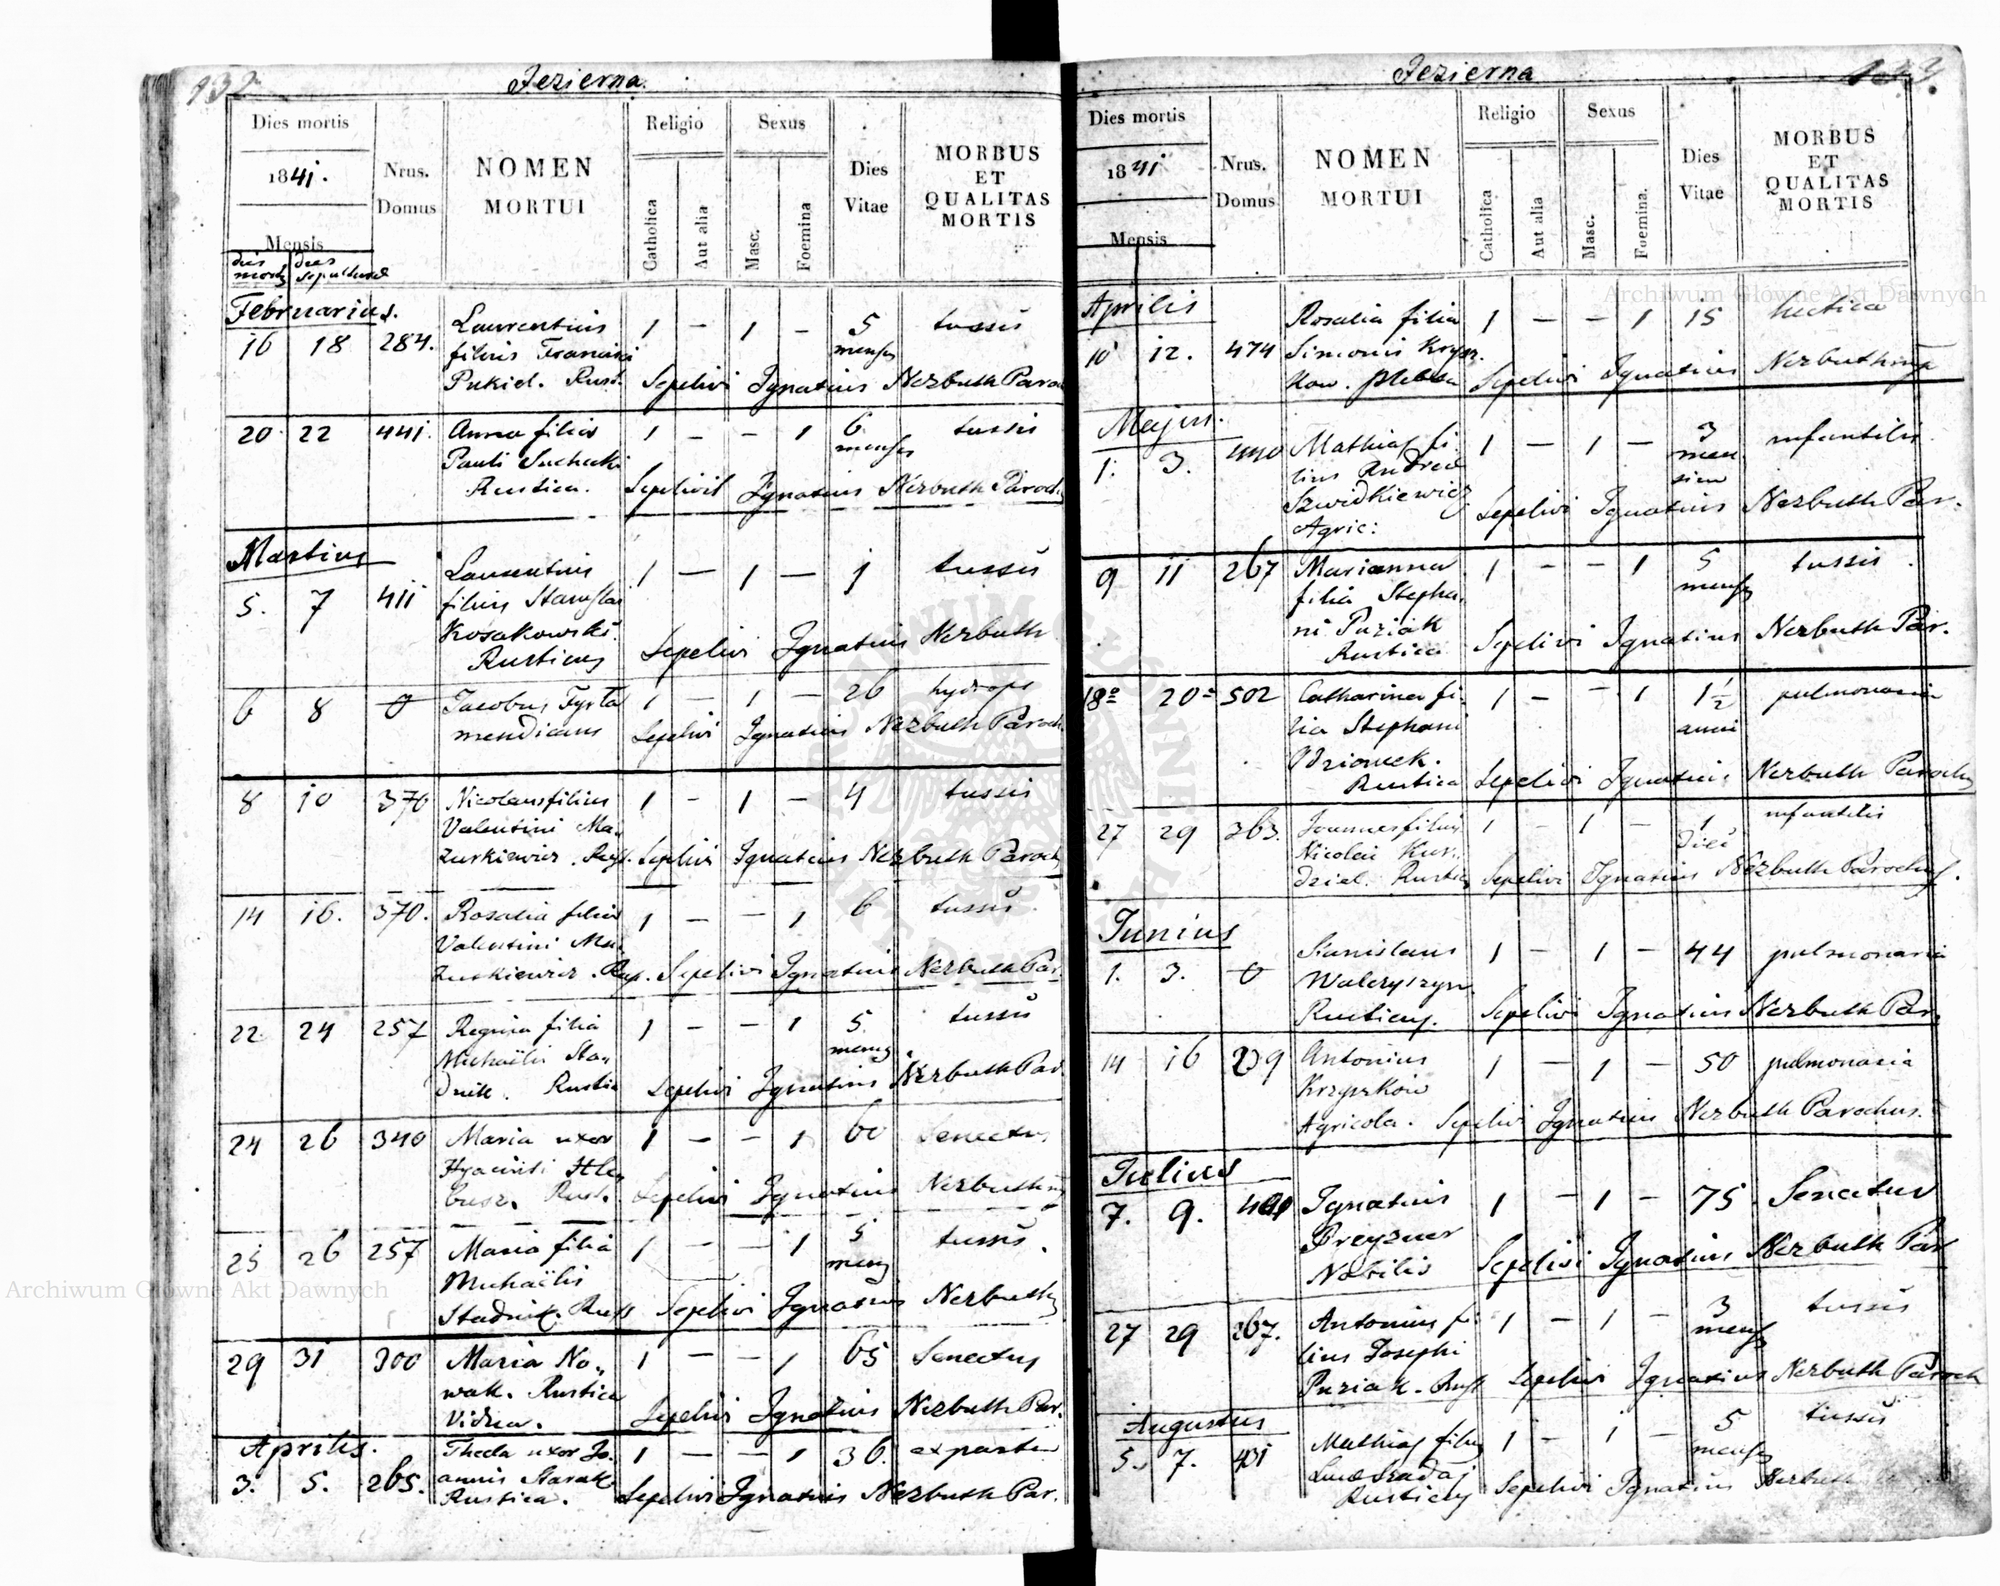 132
Jezierna.
Dies mortis
1841.
Mensis
dies mortis
dies sepulturae
Nrus. Domus
NOMEN MORTUI
Religio
Catholica
Aut alia
Sexus
Masc.
Foemina
Dies Vitae
MORBUS ET QUALITAS MORTIS
Februarius.
16 18 284. Laurentius 1 – 1 – 5 tussis
filius Francisci menses
Pukiel. Rust. Sepelivi Ignatius Nerbuth Paroch
20 22 441. Anna filia 1 – – 1 6 tussis
Pauli Suchecki menses
Rustica. Sepelivit Ignatius Nerbuth Paroch.
Martius
5. 7 411 Laurentius 1 – 1 – 1 tussis
filius Stanislai
Kosakowski.
Rusticus Sepelivi Ignatius Nerbuth
6 8 0 Jacobus Fysta 1 – 1 – 26 hydrops
mendicans Sepelivi Ignatius Nerbuth Paroch.
8 10 370 Nicolaus filius 1 – 1 – 4 tussis
Valentini Ma-
zurkiewicz. Rust. Sepelivi Ignatius Nerbuth Paroch
14 16. 370. Rosalia filia 1 – – 1 6 tussis
Valentini Ma-
zurkiewicz. Rus. Sepelivi Ignatius Nerbuth Par.
22 24 257 Regina filia 1 – – 1 5 tussis
Michaëlis Sta- mens
dnik. Rustica Sepelivi Ignatius Nerbuth Par
24 26 340 Maria uxor 1 – – 1 60 Senectus
Hyacinti Hle-
busz. Rust. Sepelivi Ignatius Nerbuth
25 26 257 Maria filia 1 – – 1 5 tussis.
Michaëlis mens
Stadnik. Rust Sepelivi Ignatius Nerbuth
29 31 300 Maria No- 1 – – 1 65 Senectus
wak. Rustica
Vidua. Sepelivi Ignatius Nerbuth Par.
Aprilis.
3. 5. 265. Thecla uxor Jo- 1 – – 1 36. ex partu
annis Slarak
Rustica. Sepelivi Ignatius Nerbuth Par.
Jezierna
133.
Dies mortis
1841
Mensis
Nrus. Domus
NOMEN MORTUI
Religio
Catholica
Aut alia
Sexus
Masc.
Foemina.
Dies Vitae
MORBUS ET QUALITAS MORTIS
Aprilis
10 12. 474 Rosalia filia 1 – – 1 15 hectica
Simonis Krysz-
kow. plebea Sepelivi Ignatius Nerbuth
Majus.
1. 3. 440 Mathias fi- 1 – 1 – 3 infantilis.
lius Andreae men
Szwidkiewicz sium
Agric: Sepelivi Ignatius Nerbuth Par.
9 11 267 Marianna 1 – – 1 5 tussis.
filia Stepha- menses
ni Puziak
Rustica Sepelivi Ignatius Nerbuth Par.
18 20 502 Catharina fi- 1 – – 1 1½ pulmonaria
lia Stephani anni
Rustica Sepelivi Ignatius Nerbuth Parochus
27 29 363. Joannes filius 1 – 1 – 1 infantilis
Nicolai Kur- diei
dziel. Rustic Sepelivi Ignatius Nerbuth Parochus.
Junius
1. 3. 0 Stanislaus 1 – 1 – 44 pulmonaria
Waleryszyn.
Rusticus. Sepelivi Ignatius Nerbuth Par.
14 16 239 Antonius 1 – 1 – 50 pulmonaria
Krzyszkow
Agricola. Sepelivi Ignatius Nerbuth Parochus.
Julius
7. 9. Ignatius 1 – 1 – 75 Senectus
Preyzner
Nobilis Sepelivi Ignatius Nerbuth Par
27 29 267. Antonius fi- 1 – 1 – 3 tussis
lius Josephi menses
Puziak. Rust Sepelivi Ignatius Nerbuth Paroch
Augustus
5. 7. 431 Mathias filius 1 – 1 – 5 tussis
Lucae Szadaj menses
Rusticus Sepelivi Ignatius Nerbuth
Archiwum Główne Akt Dawnych
Archiwum Główne Akt Dawnych